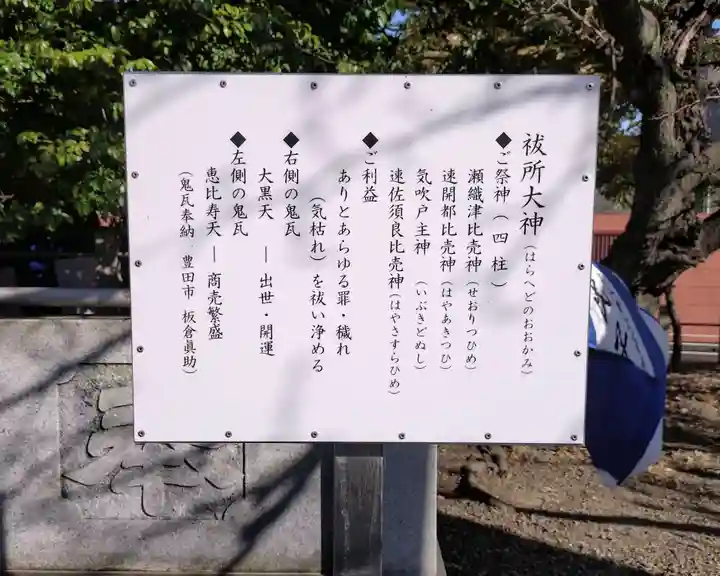 祓所大神(はらへどのおおかみ)
◆ご祭神(四柱)
瀬織津比売神(せおりつひめ)
速開都比売神(はやあきつひ)
気吹戸主神(いぶきどぬし)
速佐須良比売神(はやさすらひめ)
◆ご利益
ありとあらゆる罪・穢れ
(気枯れ)を祓い浄める
◆右側の鬼瓦
大黒天 ― 出世・開運
◆左側の鬼瓦
恵比寿天 ― 商売繁盛
(鬼瓦奉納 豊田市 板倉眞助)